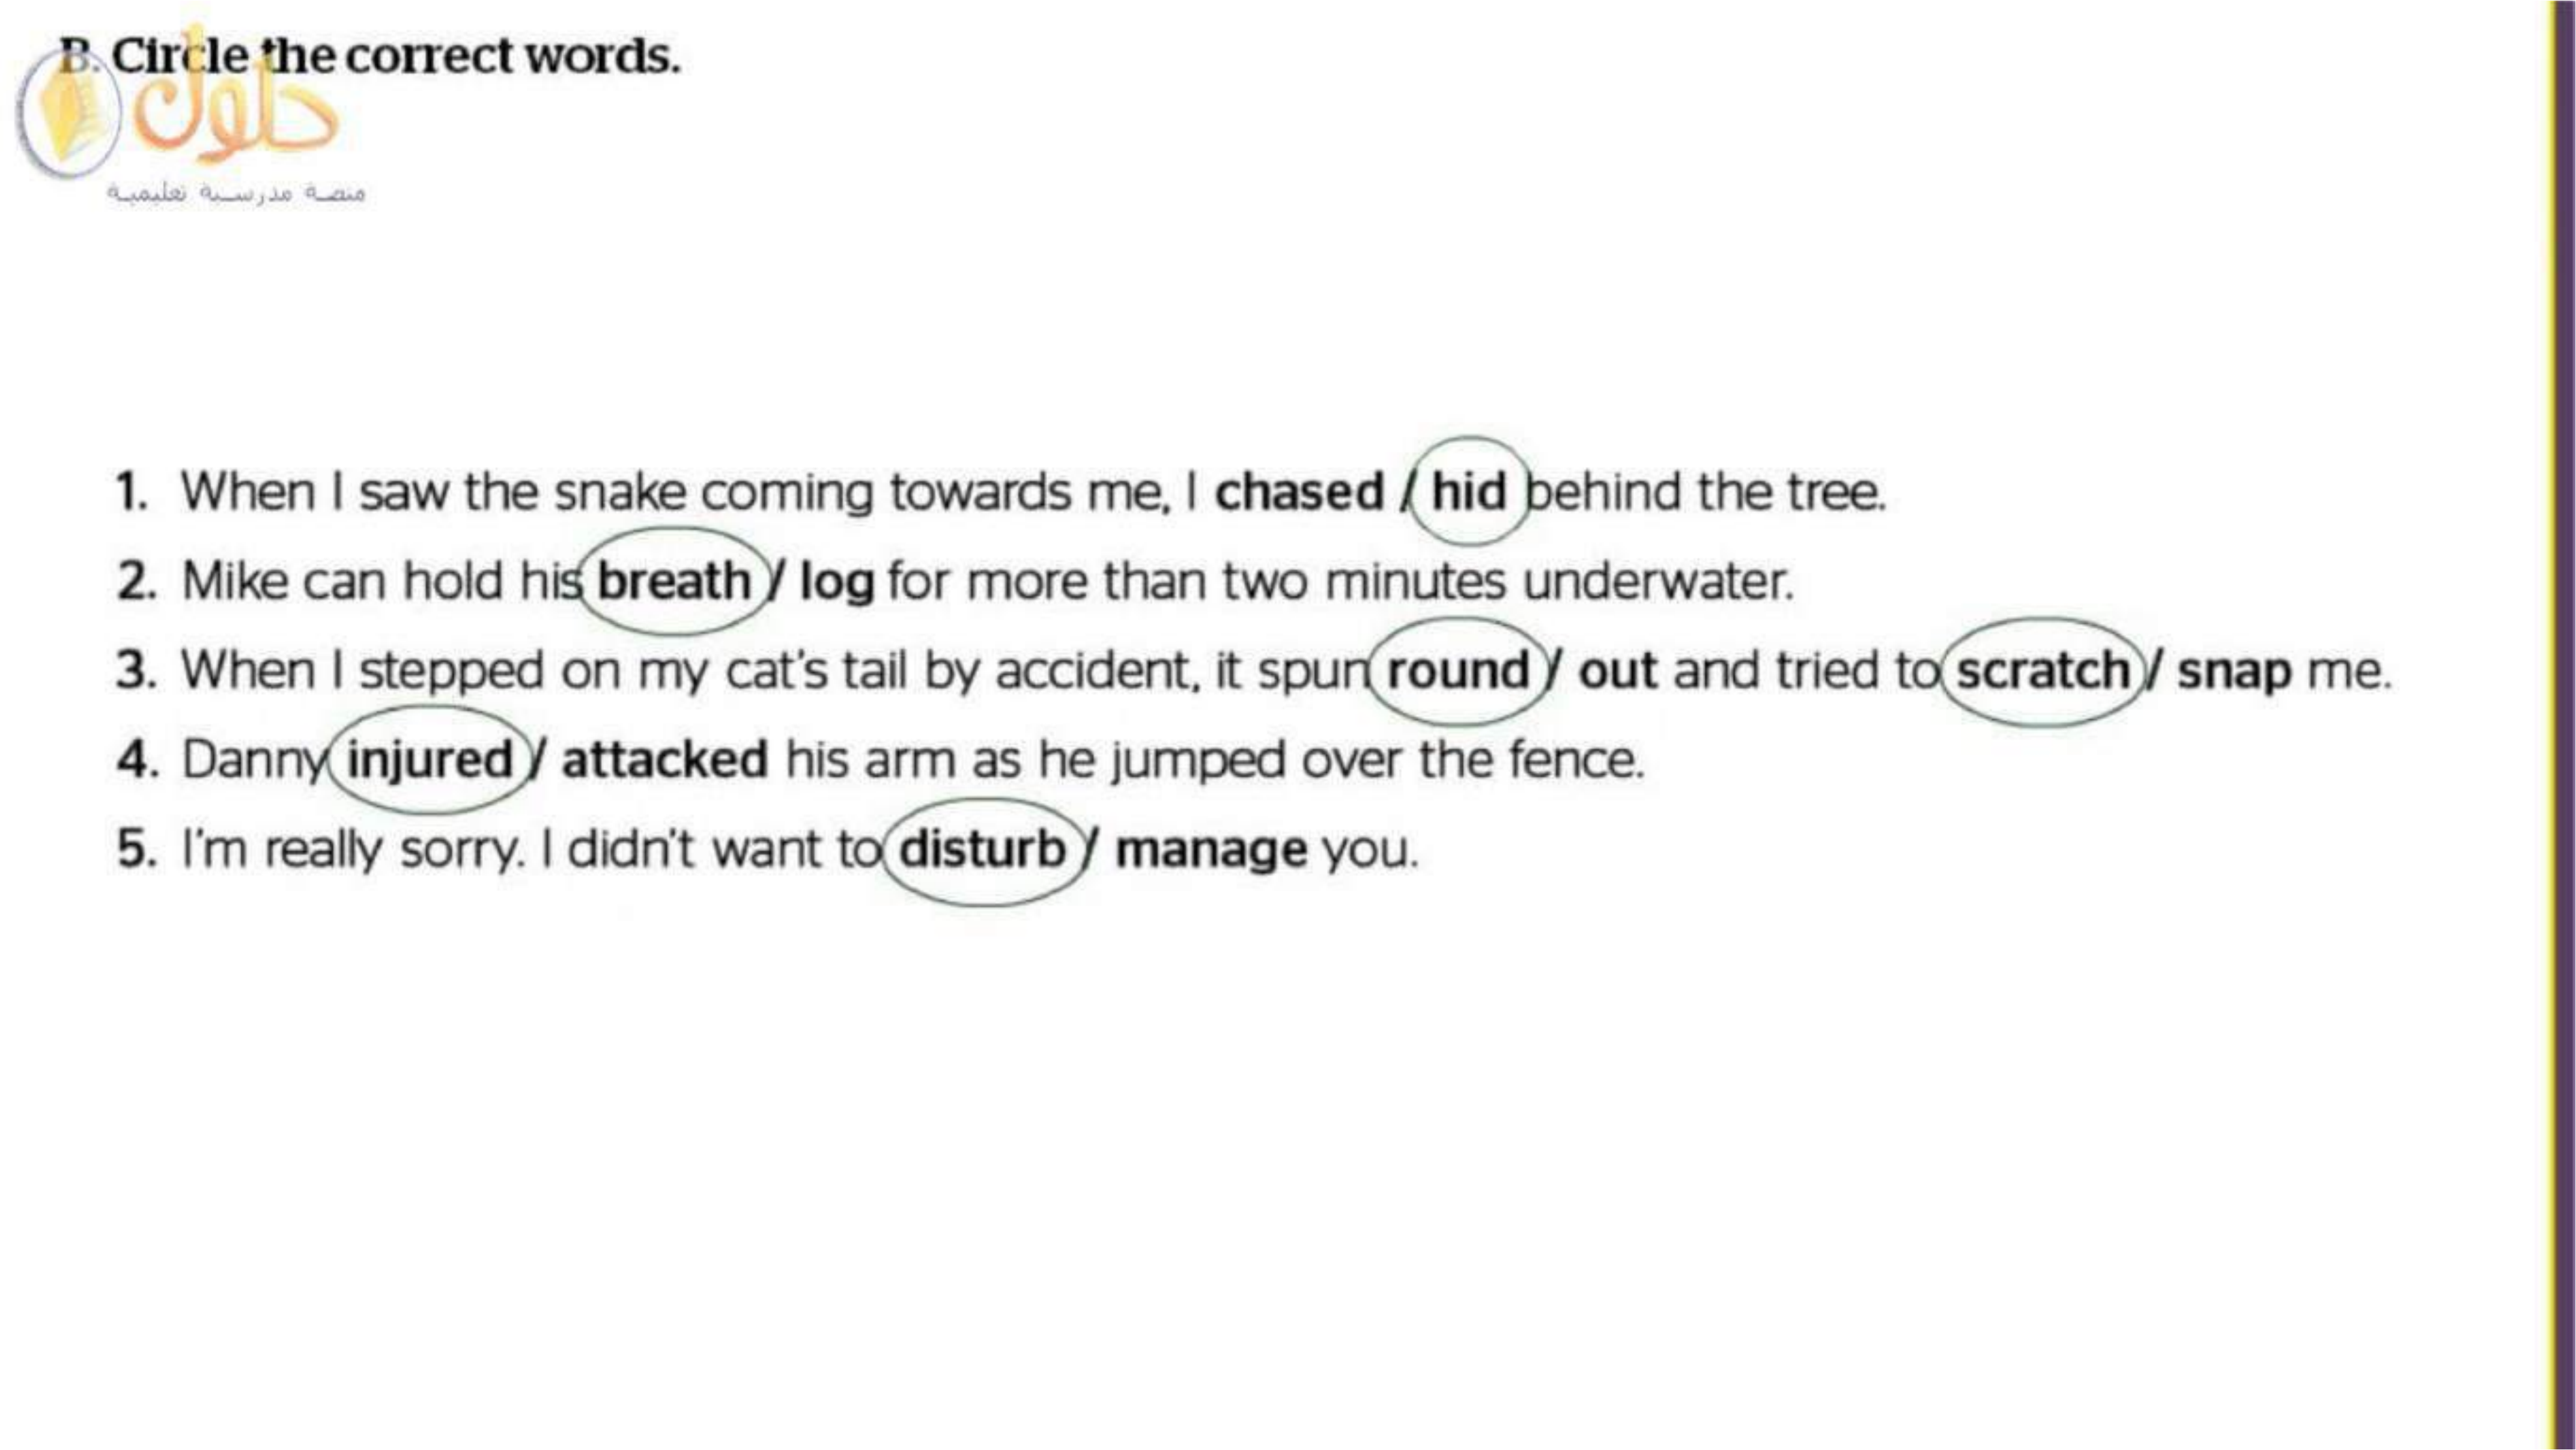 B. Circle the correct words.
حلول
منصة مدرسية تعليمية
1. When I saw the snake coming towards me, I chased / hid behind the tree.
2. Mike can hold his breath / log for more than two minutes underwater.
3. When I stepped on my cat's tail by accident, it spun round / out and tried to scratch / snap me.
4. Danny injured / attacked his arm as he jumped over the fence.
5. I'm really sorry. I didn't want to disturb / manage you.